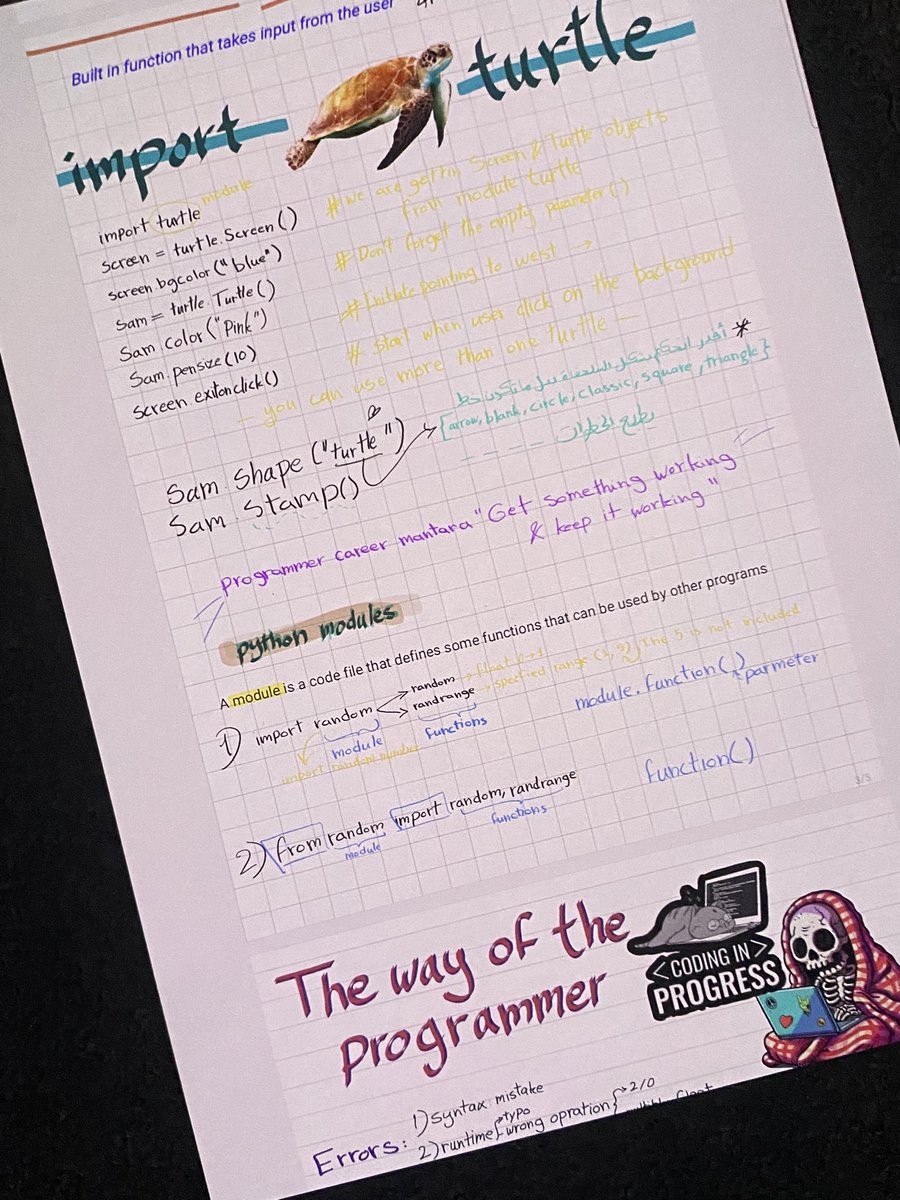 Built in function that takes input from the user
import turtle
import turtle module
screen = turtle.Screen()
screen.bgcolor("blue")
Sam = turtle.Turtle()
Sam color("Pink")
Sam.pensize(10)
screen.exitonclick()
# we are gettin Screen & Turtle objects
from module turtle
# Don't forget the empty parameter()
# Initiate pointing to west →
# Start when user click on the background
- you can use more than one turtle -
*
[arrow, blank, circle, classic, square, triangle}
Sam Shape ("turtle")
Sam Stamp()
programmer career mantara "Get something working
& keep it working"
python modules
A module is a code file that defines some functions that can be used by other programs
random → float 0→1
1) import random
randrange → specfied range (1, 5) The 5 is not included
module
functions
module.function()
parmeter
import random number
2) from random import random, randrange
module
functions
function()
3/5
The way of the
programmer
<CODING IN>
PROGRESS
Errors: 1) syntax mistake
2) runtime
typo
wrong opration
2/0